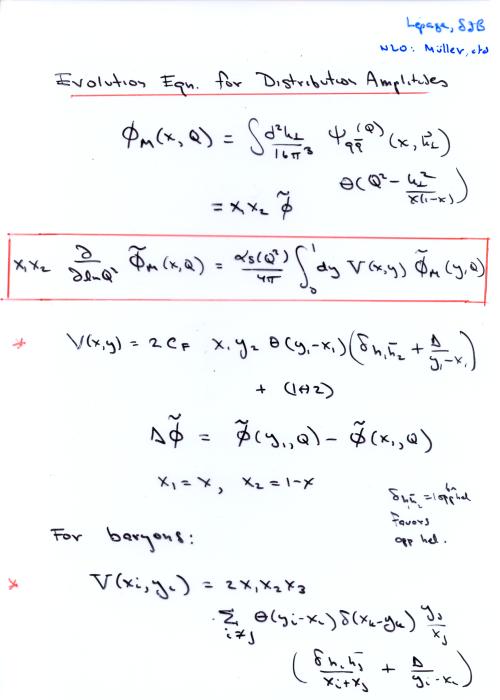 Lepage, SJB
NLO: Müller, etal
Evolution Eqn. for Distribution Amplitudes
ϕ_M(x,Q) = ∫ d²k_⊥/16π³ ψ_{qq̄}^{(Q)}(x, k⃗_⊥)
θ(Q² - k_⊥²/x(1-x))
= x₁x₂ ϕ̃
x₁x₂ ∂/∂lnQ² ϕ̃_M(x,Q) = α_s(Q²)/4π ∫₀¹ dy V(x,y) ϕ̃_M(y,Q)
* V(x,y) = 2C_F x₁y₂ θ(y₁-x₁)(δ_{h₁h̄₂} + Δ/y₁-x₁)
+ (1↔2)
Δϕ̃ = ϕ̃(y₁,Q) - ϕ̃(x₁,Q)
x₁ = x, x₂ = 1-x
δ_{h₁h̄₂} = 1 opp hel
Favors
opp hel.
For baryons:
* V(xᵢ,yᵢ) = 2x₁x₂x₃
Σ_{i≠j} θ(yᵢ-xᵢ) δ(x_k-y_k) y_j/x_j
(δ_{hᵢh̄ⱼ}/xᵢ+xⱼ + Δ/yᵢ-xᵢ)